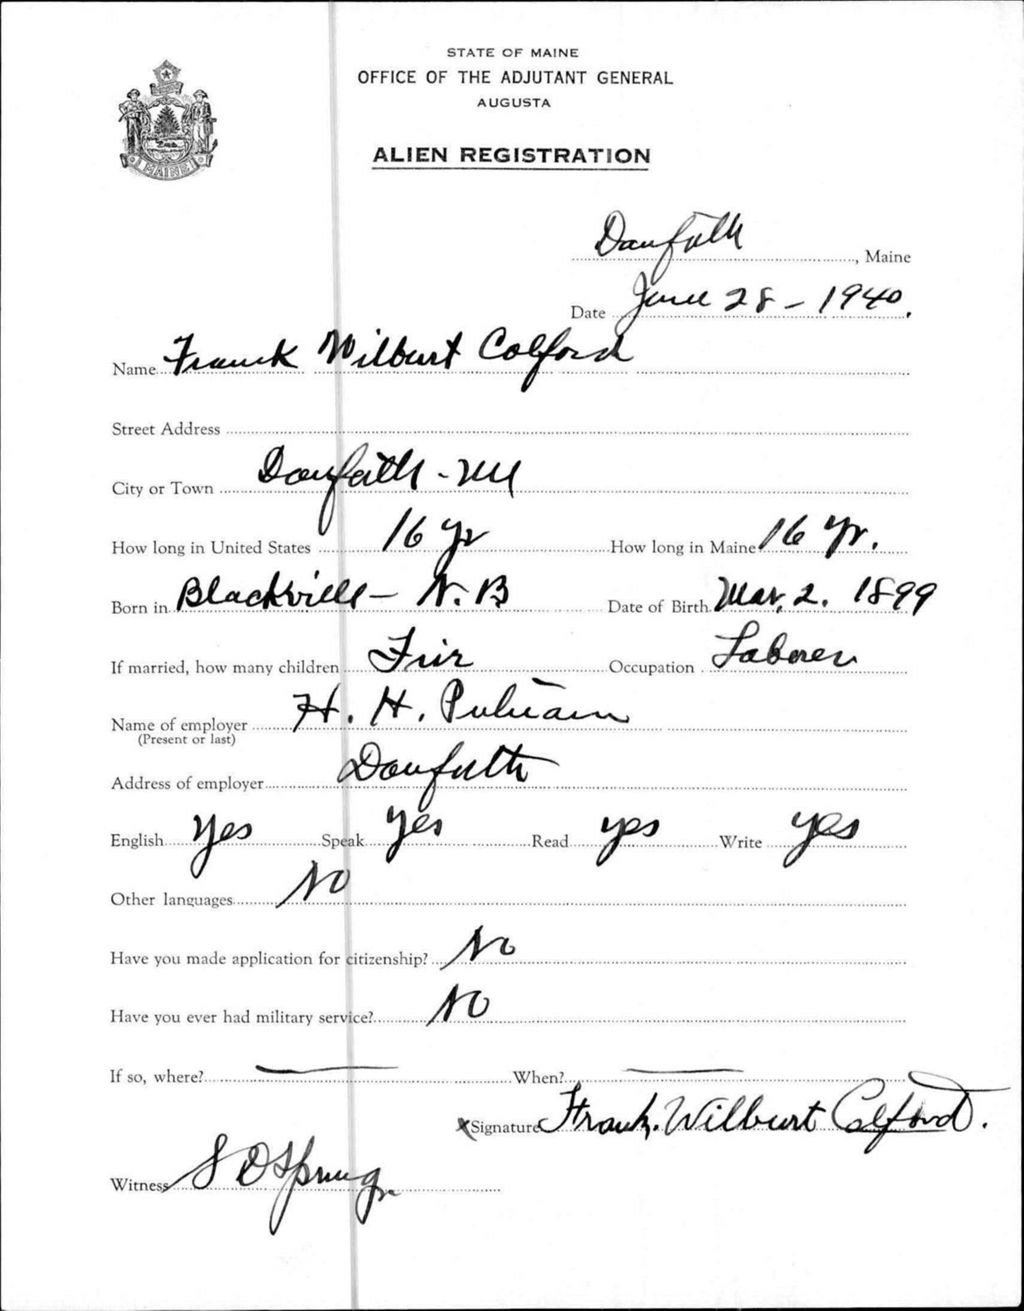 STATE OF MAINE
OFFICE OF THE ADJUTANT GENERAL
AUGUSTA
MAINE
ALIEN REGISTRATION
Danforth, Maine
Date June 28 - 1940.
Name Frank Wilburt Colford
Street Address
City or Town Danforth - Me
How long in United States 16 yr How long in Maine 16 yr.
Born in Blackville - N.B Date of Birth Mar. 2. 1899
If married, how many children Occupation Laborer
Name of employer H. H. Putnam
(Present or last)
Address of employer Danforth
English Yes Speak Yes Read yes Write yes
Other languages No
Have you made application for citizenship? No
Have you ever had military service? No
If so, where? — When? —
x Signature Frank. Wilburt Colford.
Witness S D